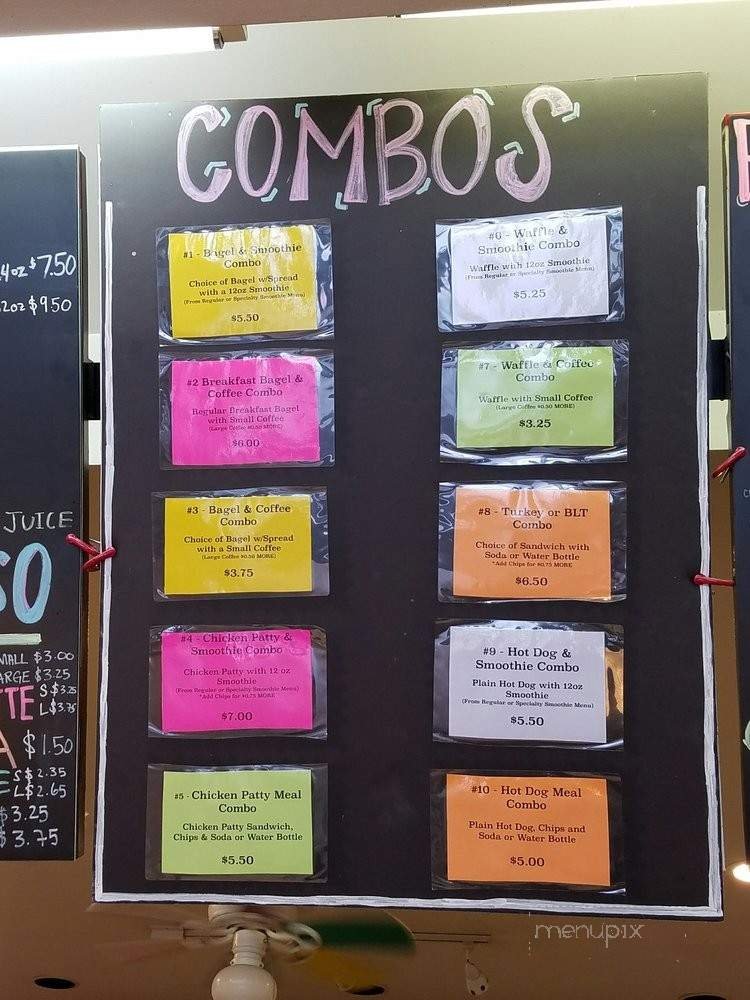 COMBOS
#1 - Bagel & Smoothie
Combo
Choice of Bagel w/Spread
with a 12oz Smoothie
(From Regular or Specialty Smoothie Menu)
$5.50
#2 Breakfast Bagel &
Coffee Combo
Regular Breakfast Bagel
with Small Coffee
(Large Coffee $0.50 MORE)
$6.00
#3 - Bagel & Coffee
Combo
Choice of Bagel w/Spread
with a Small Coffee
(Large Coffee $0.50 MORE)
$3.75
#4 - Chicken Patty &
Smoothie Combo
Chicken Patty with 12 oz
Smoothie
(From Regular or Specialty Smoothie Menu)
*Add Chips for $0.75 MORE
$7.00
#5 - Chicken Patty Meal
Combo
Chicken Patty Sandwich,
Chips & Soda or Water Bottle
$5.50
#6 - Waffle &
Smoothie Combo
Waffle with 12oz Smoothie
(From Regular or Specialty Smoothie Menu)
$5.25
#7 - Waffle & Coffee
Combo
Waffle with Small Coffee
(Large Coffee $0.50 MORE)
$3.25
#8 - Turkey or BLT
Combo
Choice of Sandwich with
Soda or Water Bottle
*Add Chips for $0.75 MORE
$6.50
#9 - Hot Dog &
Smoothie Combo
Plain Hot Dog with 12oz
Smoothie
(From Regular or Specialty Smoothie Menu)
$5.50
#10 - Hot Dog Meal
Combo
Plain Hot Dog, Chips and
Soda or Water Bottle
$5.00
4oz $7.50
2oz $9.50
JUICE
SO
MALL $3.00
ARGE $3.25
TTE S $3.25
L $3.75
A $1.50
E S $2.35
L $2.65
$3.25
$3.75
menupix